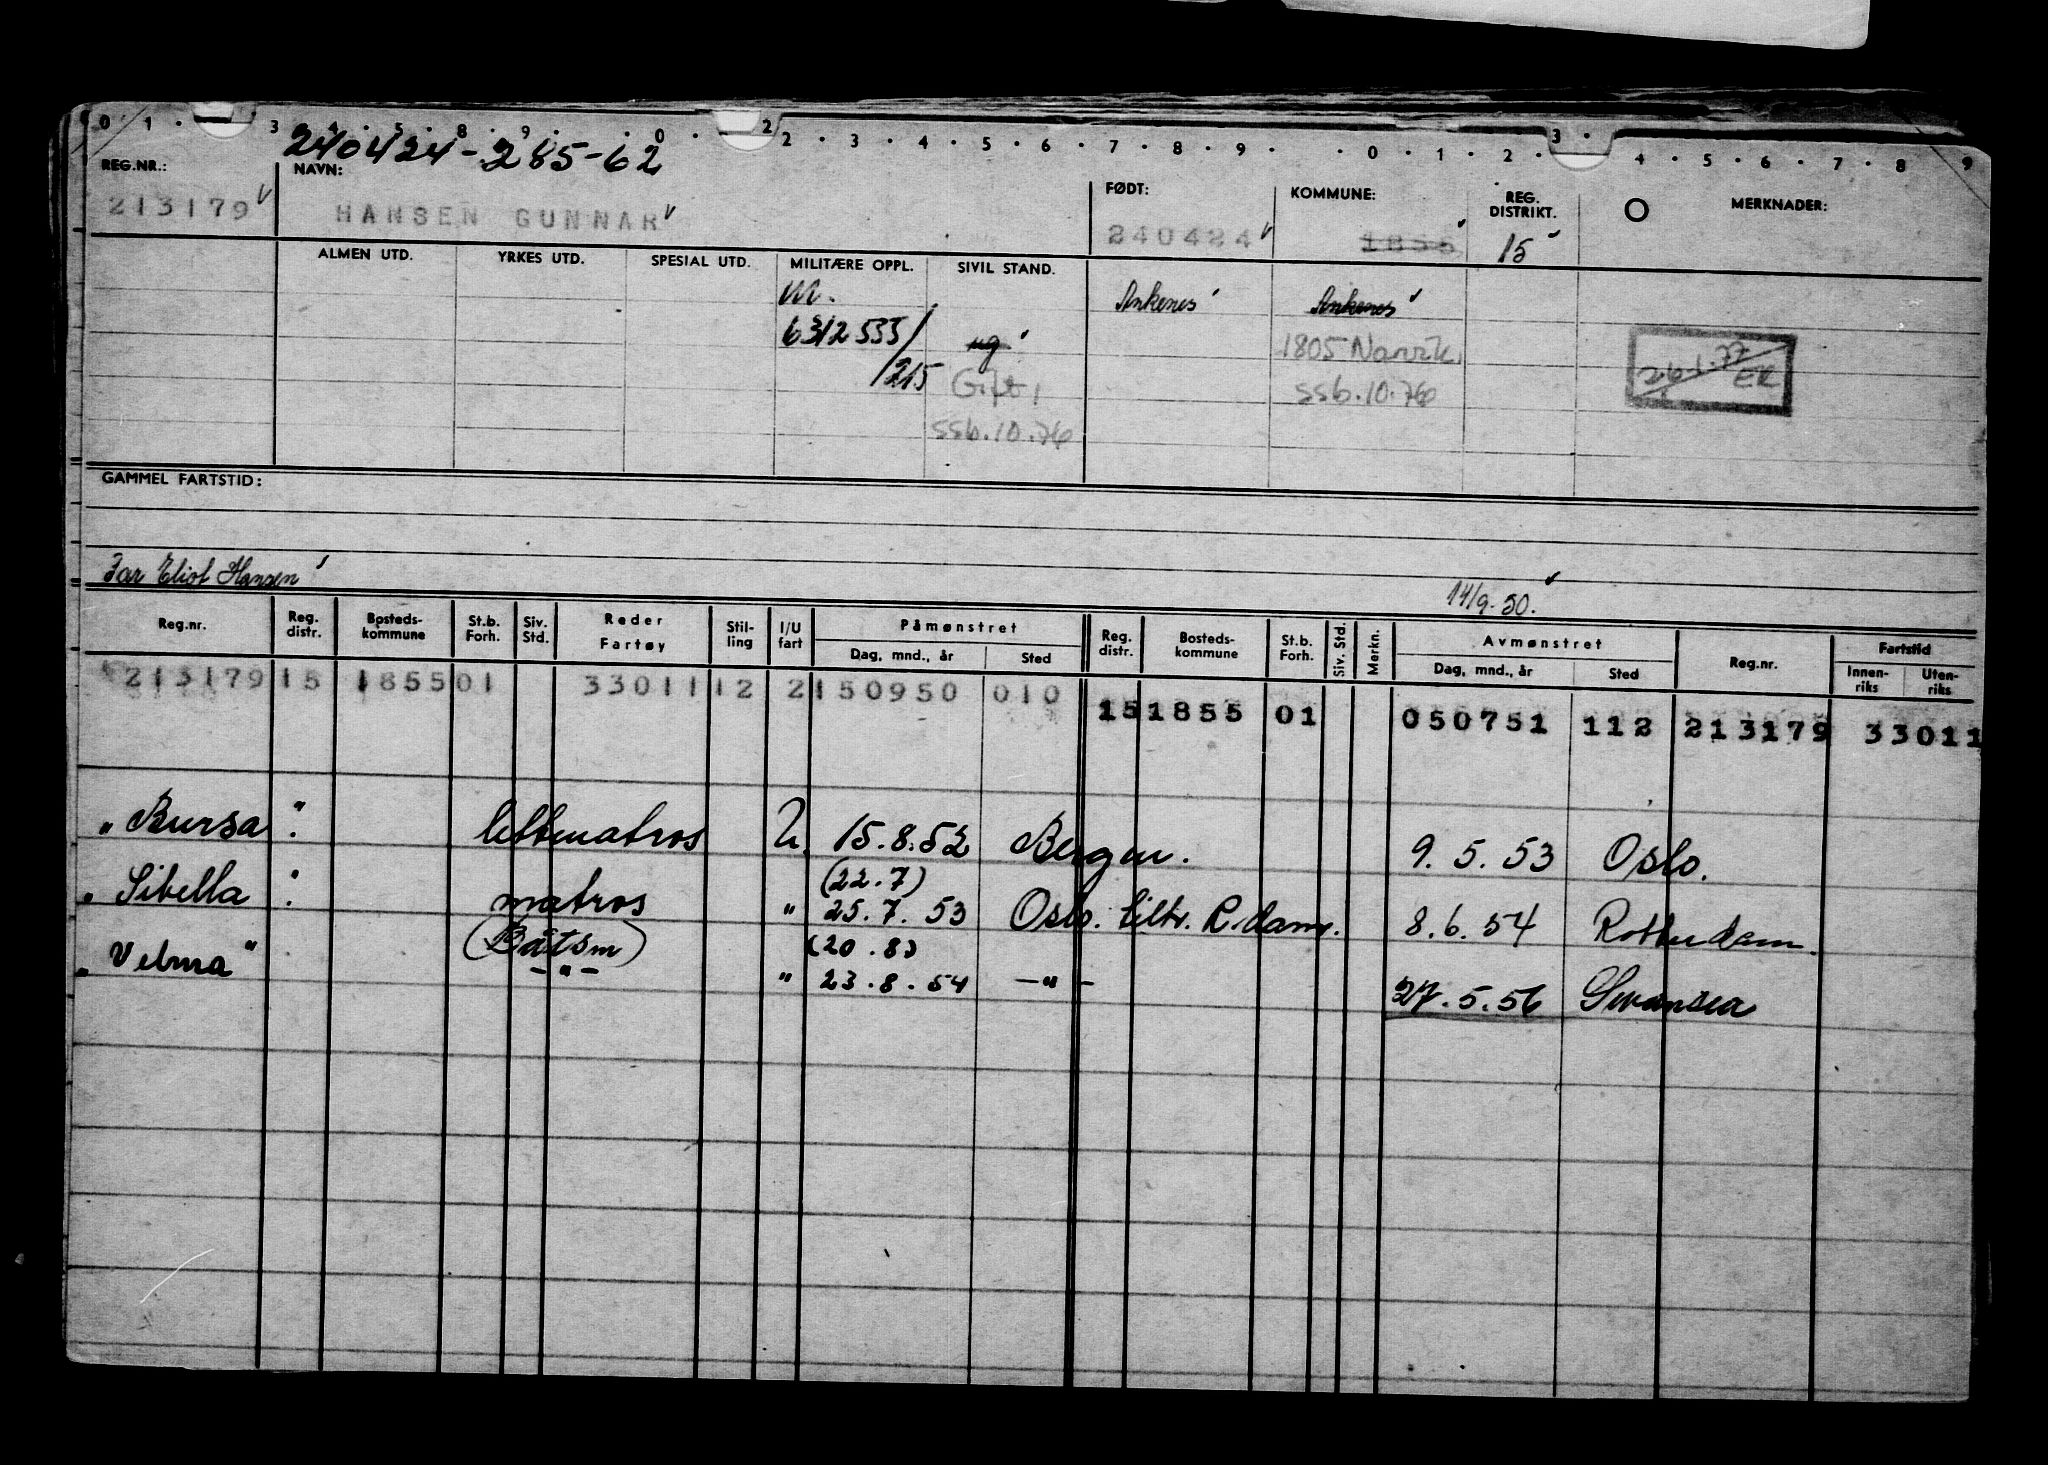 0 1 . 3 4 . 5 . 8 . 9 . . 0 . 2 2 . 3 . 4 . 5 . 6 . 7 . 8 . 9 . . 0 . 1 . 2 . 3 . 4 . 5 . 6 . 7 . 8 9
240424-285-62
REG.NR.: NAVN: FØDT: KOMMUNE: REG. DISTRIKT. O MERKNADER:
213179 HANSEN GUNNAR 240424 1855 15
ALMEN UTD. YRKES UTD. SPESIAL UTD. MILITÆRE OPPL. SIVIL STAND.
M. Ankenes Ankenes
6312533/ ug 1805 Narvik,
/215 Gift, ssb.10.76 26.1.77 ER
ssb.10.76
GAMMEL FARTSTID:
Far Eliot Hansen
14/9-50.
Reg.nr. Reg. distr. Bosteds- kommune St.b. Forh. Siv. Std. Reder Fartøy Stil- ling I/U fart Påmønstret Reg. distr. Bosteds- kommune St.b. Forh. Siv. Std. Merkn. Avmønstret Reg.nr. Fartstid
Dag, mnd., år Sted Dag, mnd., år Sted Innen- riks Uten- riks
213179 15 1855 01 33011 12 2 150950 010 15 1855 01 050751 112 213179 33011
"Bursa" lettmatros U. 15.8.52 Bergen. 9.5.53 Oslo.
(22.7)
"Sibella" matros " 25.7.53 Oslo. tiltr. R.dam. 8.6.54 Rotterdam
(Båtsm) (20.8)
"Velma" -"- " 23.8.54 -"- 27.5.56 Swansea